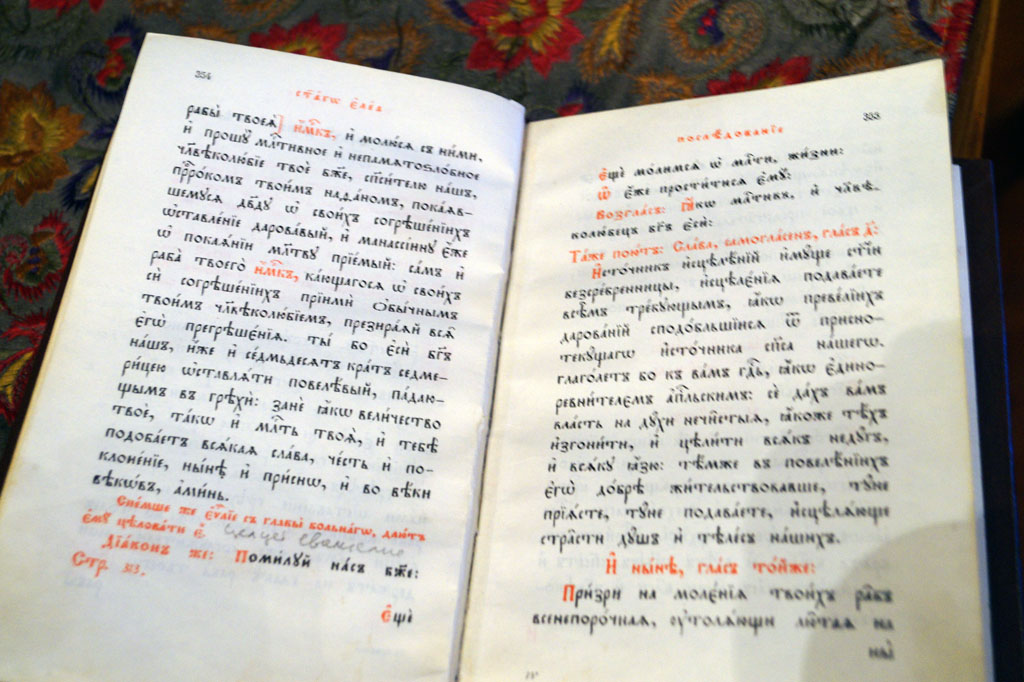 354
ст҃агѡ є҆ле́а
рабы̀ твоеѧ̀] и҆́м҃къ, и҆ молю́сѧ съ ни́ми,
и҆ прошꙋ̀ мл҃тивное и҆ непамѧтоѕло́бное
чл҃вѣколю́бїе твоѐ бж҃е, сп҃си́телю на́шъ,
прⷪ҇ро́комъ твои́мъ наѳа́номъ, пока́ѧв-
шемꙋсѧ дв҃дꙋ ѡ҆ свои́хъ согрѣше́нїихъ
ѡ҆ставле́нїе дарова́вый, и҆ манассі́инꙋ є҆́же
ѡ҆ покаѧ́нїи мл҃твꙋ прїе́мый: са́мъ и҆
раба̀ твоего̀ и҆́м҃къ, ка́ющагосѧ ѡ҆ свои́хъ
сѝ согрѣше́нїихъ прїимѝ ѻ҆бы́чнымъ
твои́мъ чл҃вѣколю́бїемъ, презира́ѧй всѧ̑
є҆гѡ̀ прегрѣшє́нїѧ. ты́ бо є҆сѝ бг҃ъ
на́шъ, и҆́же и҆ се́дмьдесѧтъ кра́тъ седме-
ри́цею ѡ҆ставлѧ́ти повелѣ́вый, па́даю-
щымъ въ грѣхѝ: занѐ ꙗ҆́кѡ вели́чество
твоѐ, та́кѡ и҆ мл҃ть твоѧ̀, и҆ тебѣ̀
подоба́етъ всѧ́каѧ сла́ва, че́сть и҆ по-
клоне́нїе, ны́нѣ и҆ при́снѡ, и҆ во вѣ́ки
вѣкѡ́въ, а҆ми́нь.
Сне́мше же є҆ѵⷢ҇лїе съ главы̀ больна́гѡ, даю́тъ
є҆мꙋ̀ цѣлова́ти є҆̀. целует евангелие
Дїа́конъ же: Поми́лꙋй на́съ бж҃е:
Стр. 313.
Є҆щѐ
355
послѣ́дованїе
Є҆щѐ мо́лимсѧ ѡ҆ мл҃ти, жи́зни:
Ѡ҆ є҆́же прости́тисѧ є҆мꙋ̀:
Возгла́съ: Ꙗ҆́кѡ мл҃тивъ, и҆ чл҃вѣ-
колю́бецъ бг҃ъ є҆сѝ:
Та́же пою́тъ: Сла́ва, самогла́сенъ, гла́съ д҃:
И҆сто́чникъ и҆сцѣле́нїй и҆мꙋ́ще ст҃і́и
безсре́бренницы, и҆сцѣлє́нїѧ подава́ете
всѣ̑мъ тре́бꙋющымъ, ꙗ҆́кѡ превели́кихъ
дарова́нїй сподо́бльшїисѧ ѿ присно-
текꙋ́щагѡ и҆сто́чника сп҃са на́шегѡ.
глаго́летъ бо къ ва́мъ гдⷭ҇ь, ꙗ҆́кѡ є҆дино-
ревни́телємъ а҆пⷭ҇льскимъ: сѐ да́хъ ва́мъ
вла́сть на дꙋ́хи нечи́стыѧ, ꙗ҆́коже тѣ́хъ
и҆згони́ти, и҆ цѣли́ти всѧ́къ недꙋ́гъ,
и҆ всѧ́кꙋ ꙗ҆́зю: тѣ́мже въ повелѣ́нїихъ
є҆гѡ̀ до́брѣ жи́тельствовавше, тꙋ́не
прїѧ́сте, тꙋ́не подава́ете, и҆сцѣлѧ́юще
стра̑сти дꙋ́шъ и҆ тѣле́съ на́шихъ.
И҆ ны́нѣ, гла́съ то́йже:
При́зри на молє́нїѧ твои́хъ ра̑бъ
всенепоро́чнаѧ, ᲂу҆толѧ́ющи лю̑таѧ на
ны̀